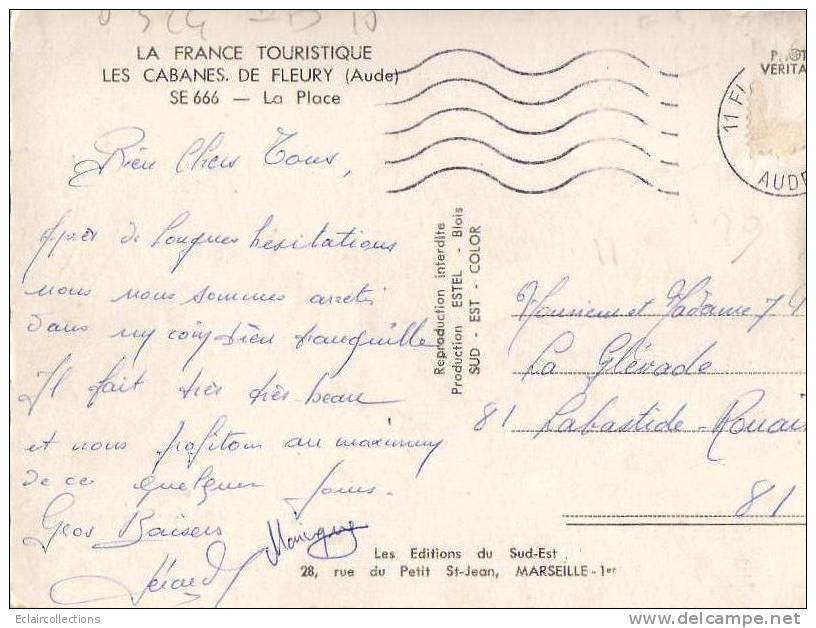 LA FRANCE TOURISTIQUE
LES CABANES. DE FLEURY (Aude)
SE 666 — La Place
Bien Chers Tous,
Après de longues hésitations
nous nous sommes arrêtés
dans un coin bien tranquille
Il fait très très beau
et nous profitons au maximum
de ces quelques jours.
Gros Baisers
Gérard Monique
Reproduction interdite
Production ESTEL - Blois
SUD - EST - COLOR
VERITA
11 F
AUDE
Monsieur et Madame
La Glévade
81 Labastide-Rouai
81
Les Editions du Sud-Est
28, rue du Petit St-Jean, MARSEILLE-1er
Eclaircollections
www.delcampe.net